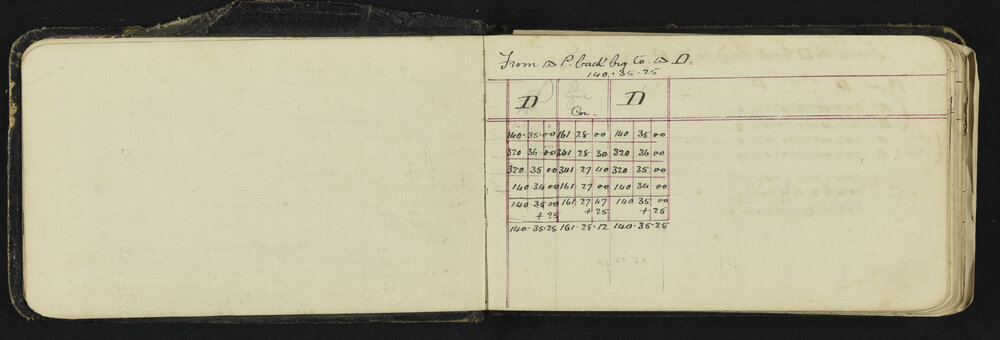 From △ P. back brg to △ D.
140.35.25
D D
Cor.
140.35.00 161 28 00 140 35 00
320 36 00 341 28 30 320 36 00
320 35 00 341 27 40 320 35 00
140 34 00 161 27 00 140 34 00
140 35 00 161 27 47 140 35 00
+ 25 + 25 + 25
140.35.25 161.28.12 140.35.25